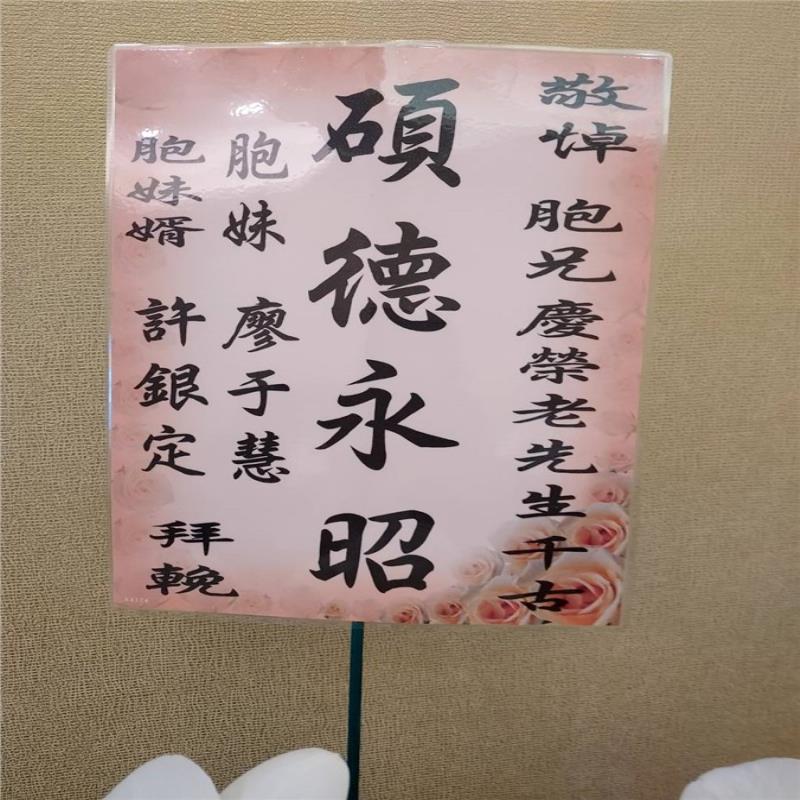 敬悼 胞兄慶榮老先生千古
碩德永昭
胞妹 廖于慧
胞妹婿 許銀定 拜輓